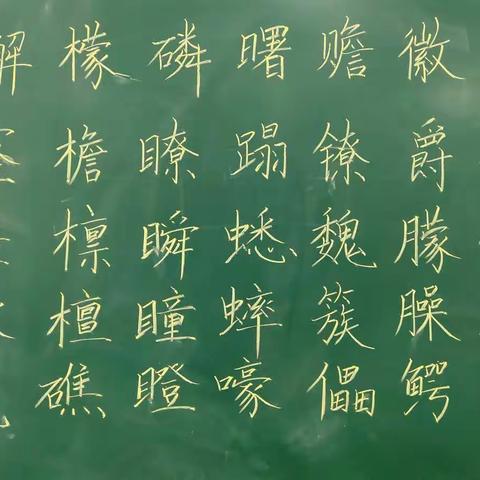 檬 磷 曙 赡 徽
檐 瞭 蹋 镣 爵
檩 瞬 蟋 魏 朦
檀 瞳 蟀 簇 臊
礁 瞪 嚎 儡 鳄